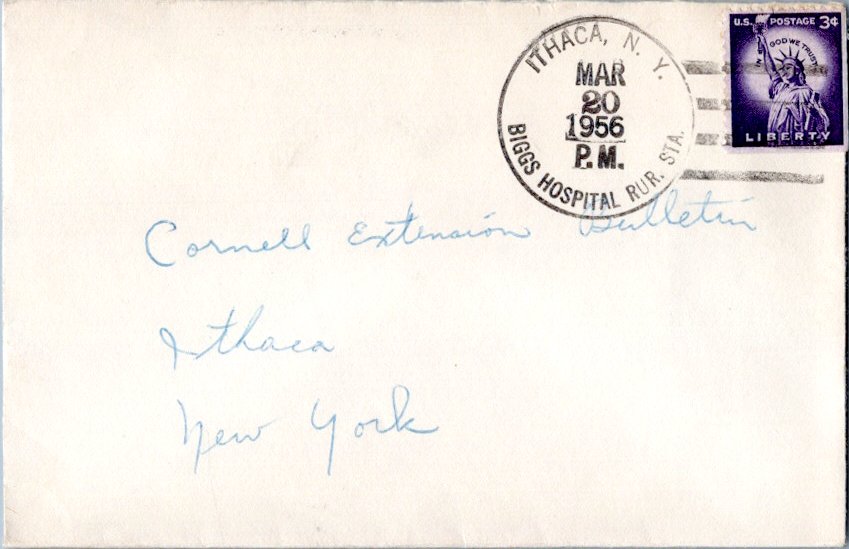 U.S. POSTAGE 3¢
IN GOD WE TRUST
LIBERTY
ITHACA, N. Y.
MAR
20
1956
P.M.
BIGGS HOSPITAL RUR. STA.
Cornell Extension Bulletin
Ithaca
New York